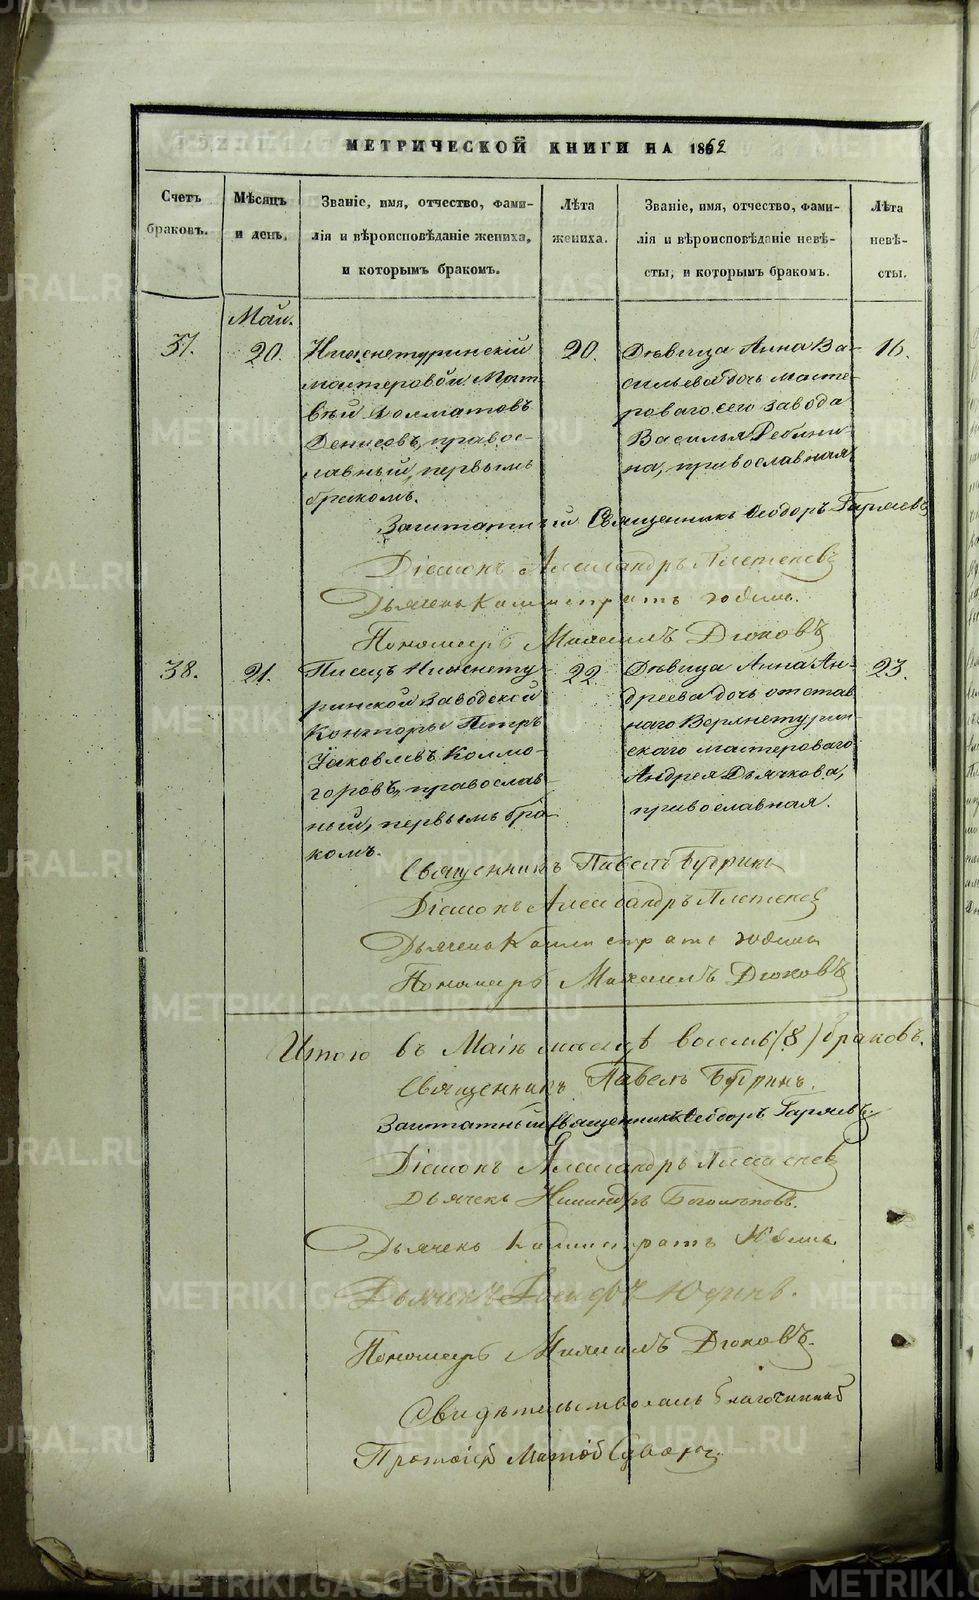 МЕТРИЧЕСКОЙ КНИГИ НА 1862
Счетъ браковъ.
Мѣсяцъ и день.
Званіе, имя, отчество, фами-
лія и вѣроисповѣданіе жениха,
и которымъ бракомъ.
Лѣта
жениха.
Званіе, имя, отчество, фами-
лія и вѣроисповѣданіе невѣ-
сты, и которымъ бракомъ.
Лѣта
невѣ-
сты.
Маи.
37.
20.
Нижнетуринскій
мастеровой Мат-
вѣй Долматовъ
Денисовъ, правос-
лавный, первымъ
бракомъ.
20.
Дѣвица Анна Ва-
сильева дочь масте-
роваго сего завода
Василья Ребяни-
на, православная
16.
Заштатный Священникъ Ѳеодоръ Гаряевъ
Діаконъ Александръ Плетеневъ
Дьячекъ Каллистратъ
Пономарь Михаилъ Дюковъ
38.
21.
Писецъ Нижнету-
ринской Заводской
Конторы Петръ
Яковлевъ Колмо-
горовъ, православ
ный, первымъ бра
комъ.
22
Дѣвица Анна Ан-
дреева дочь отстав
наго Верхнетурин-
скаго мастероваго
Андрея Дьячкова,
православная.
23.
Священникъ Павелъ
Діаконъ Александръ Плетеневъ
Дьячекъ Каллистратъ
Пономарь Михаилъ Дюковъ
Итого въ Маіѣ мѣсяцѣ восемь (8) браковъ.
Священникъ Павелъ
Заштатный Священникъ Ѳеодоръ Гаряевъ
Діаконъ Александръ Плетеневъ
Дьячекъ
Дьячекъ Каллистратъ
Дьячекъ Іосифъ Юдинъ.
Пономарь Михаилъ Дюковъ.
Свидѣтельствовалъ благочинный
Протоіей
METRIKI.GASO-URAL.RU